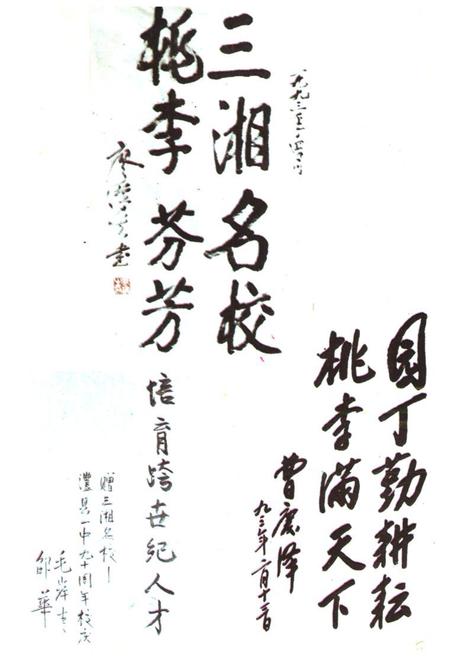 三湘名校
桃李芬芳
园丁勤耕耘
桃李满天下
曹庆泽
九三年
培育跨世纪人才
赠三湘名校—
澧县一中九十周年校庆
毛岸青
邵华